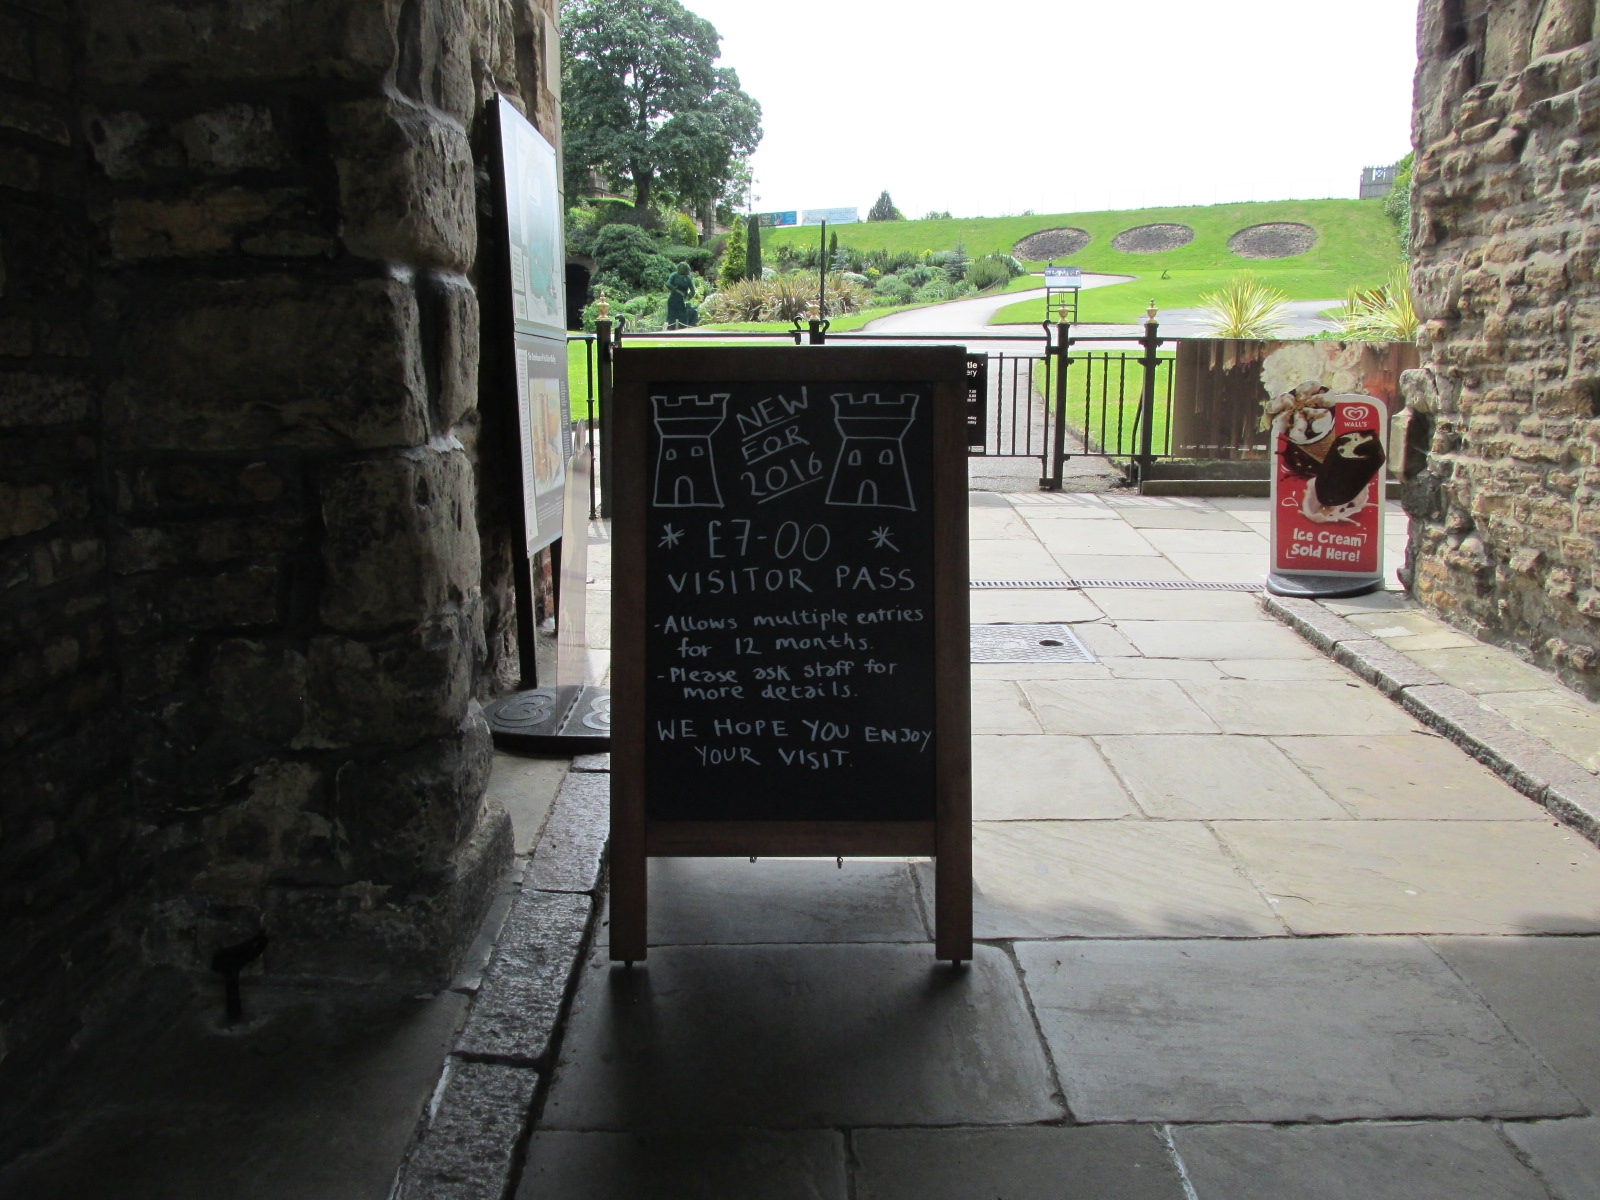 NEW
FOR
2016
* £7-00 *
VISITOR PASS
-Allows multiple entries
for 12 months.
-Please ask staff for
more details.
WE HOPE YOU ENJOY
YOUR VISIT.
WALL'S
Ice Cream
Sold Here!